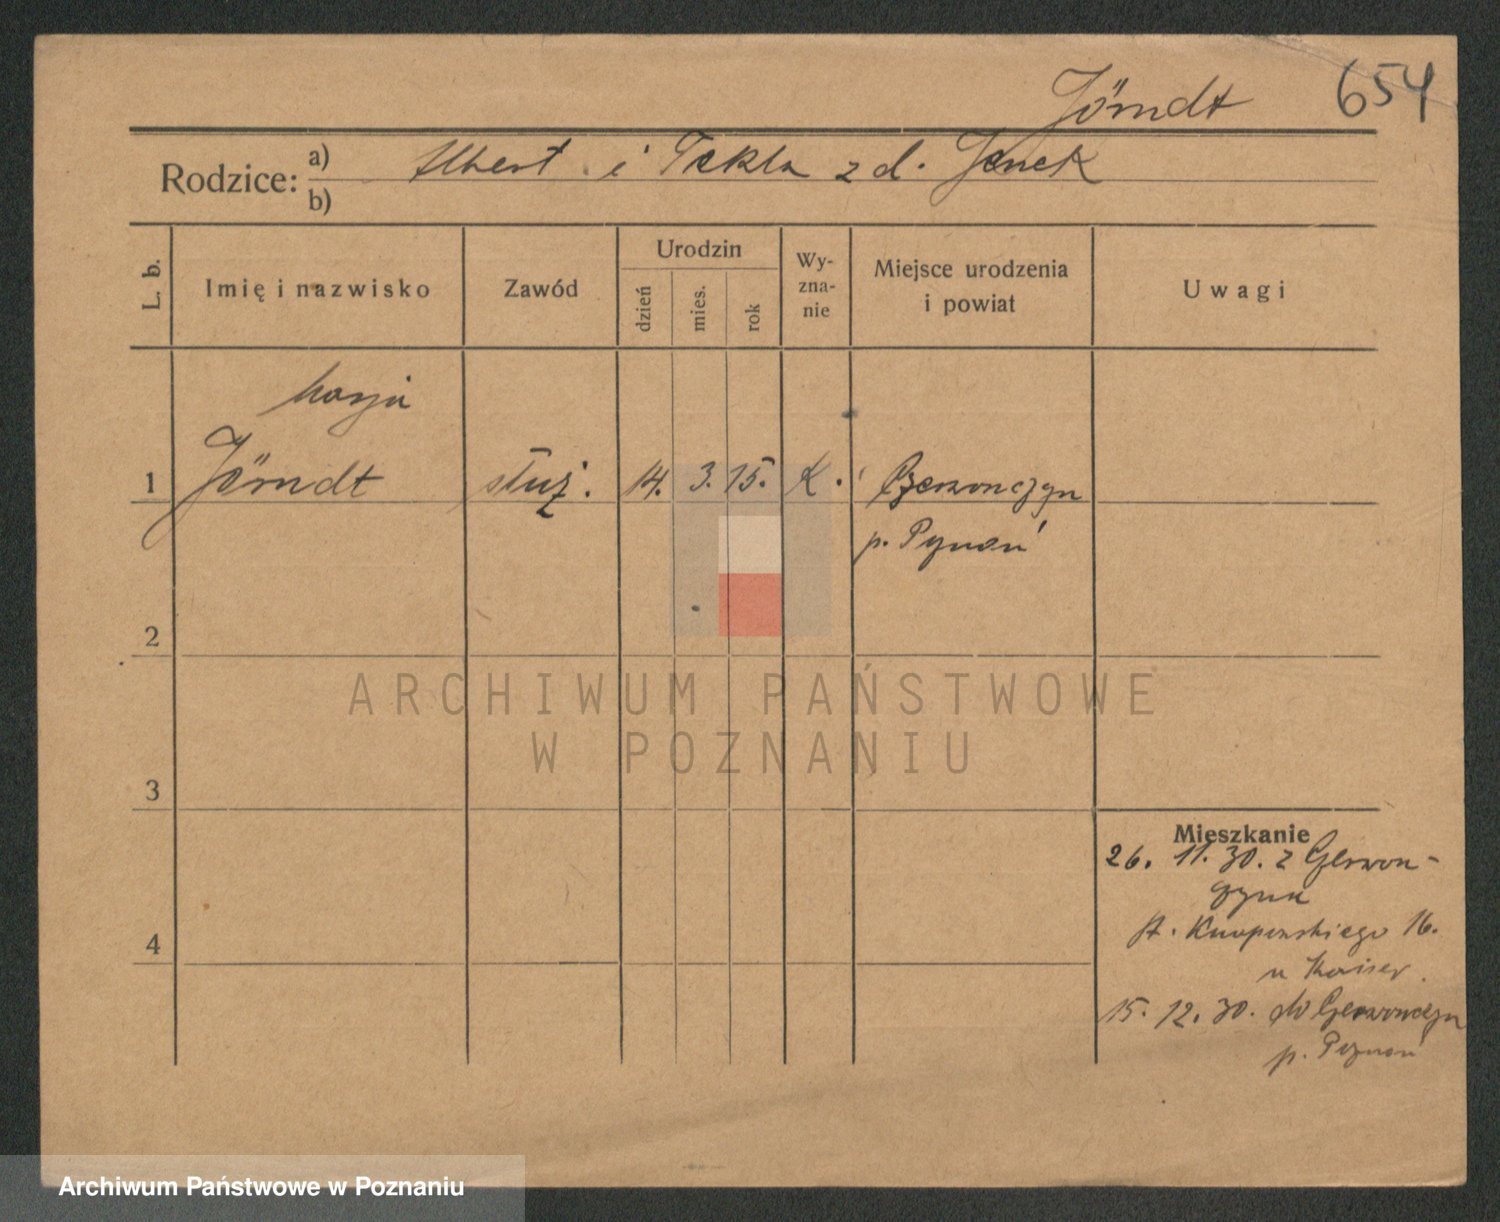 Jörndt 654
Rodzice: a) Albert i Tekla z d. Jenek
b)
L. b.
Imię i nazwisko
Zawód
Urodzin
dzień
mies.
rok
Wy-
zna-
nie
Miejsce urodzenia
i powiat
Uwagi
Marja
1 Jörndt służ. 14. 3. 15. K. Czerwonczyn
p. Poznań
2
3
4
ARCHIWUM PAŃSTWOWE
W POZNANIU
Mieszkanie
26. 11. 30. z
16.
u Kaiser.
15. 12. 30. do
p. Poznań
Archiwum Państwowe w Poznaniu